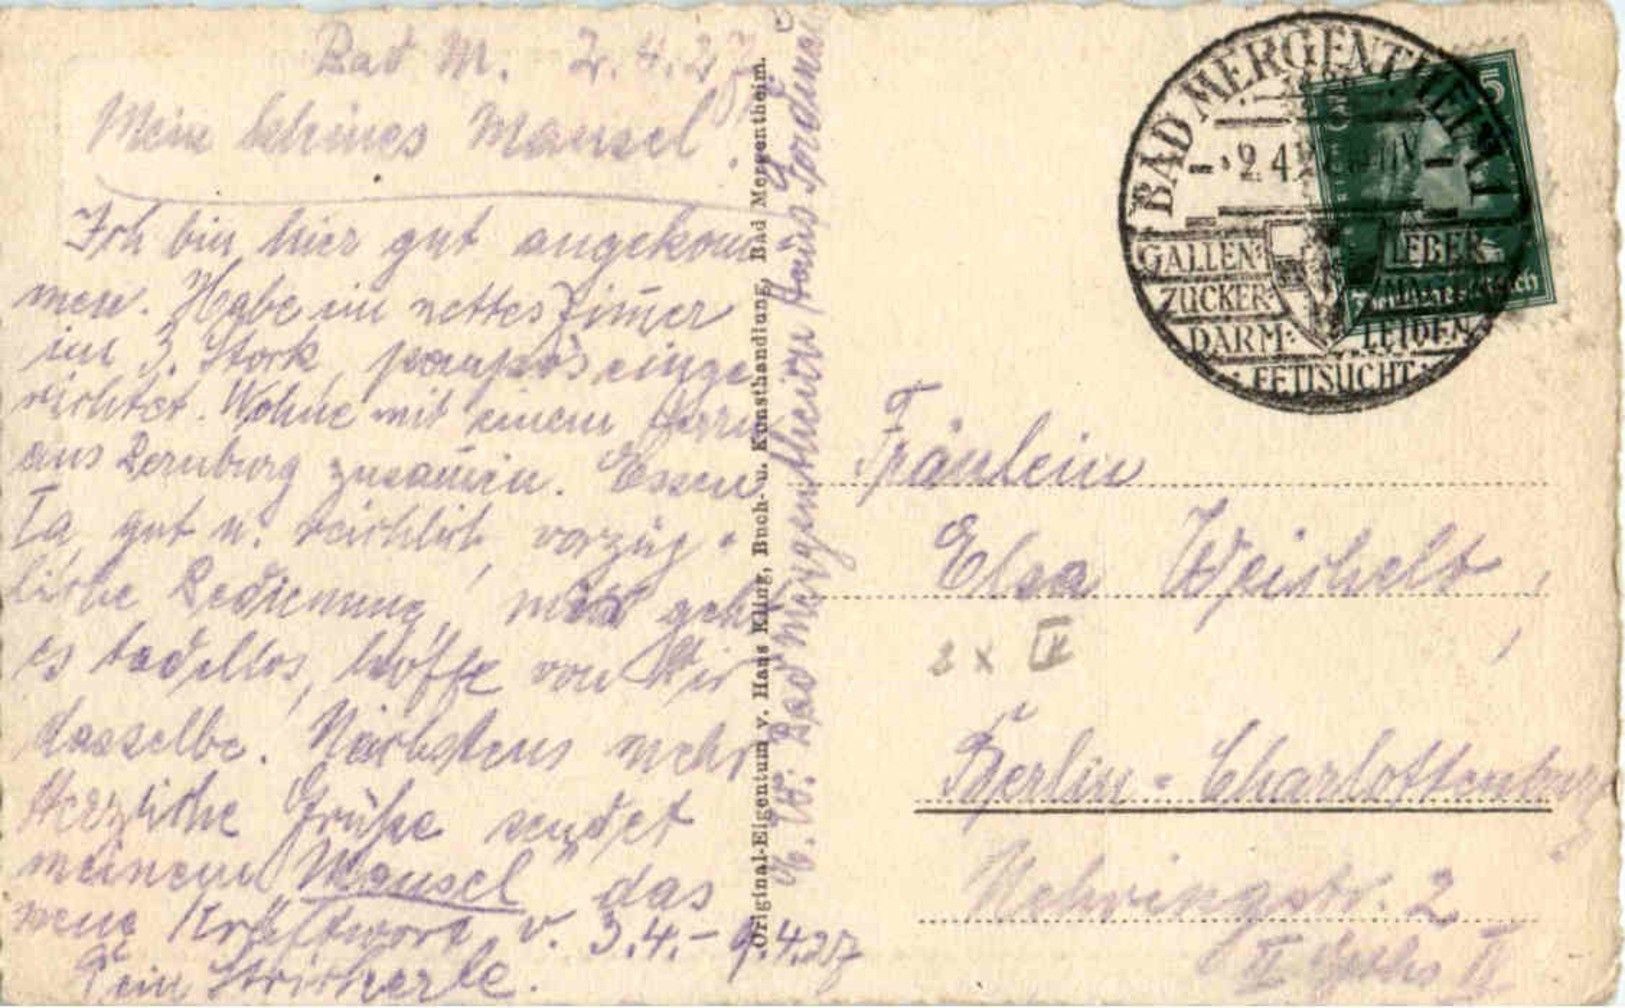 Bad M. 2.4.27
Mein kleines Mausel.
Ich bin hier gut angekom
men. Habe ein nettes Zimer
im 3. Stock, pompös einge
richtet. Wohne mit einem Herrn
aus Bernburg zusamen. Essen
Ia, gut u. reichlich, vorzüg-
liche Bedienung, mir geht
es tadellos, hoffe von Dir
dasselbe. Nächstens mehr
Herzliche Grüße sendet
meinem Mausel das
neue Kraftwort v. 3.4.- 9.4.27
Dein Stricherle.
Original-Eigentum v. Hans Kling, Buch- u. Kunsthandlung, Bad Mergentheim.
Bad Mergentheim Haus
BAD MERGENTHEIM
2.4
GALLEN- LEBER
ZUCKER-
DARM- LEIDEN
FETTSUCHT
5
Deutsches Reich
Fräulein
Elsa Weichelt,
2 x IV
Berlin-Charlottenburg
Nehringstr. 2
II